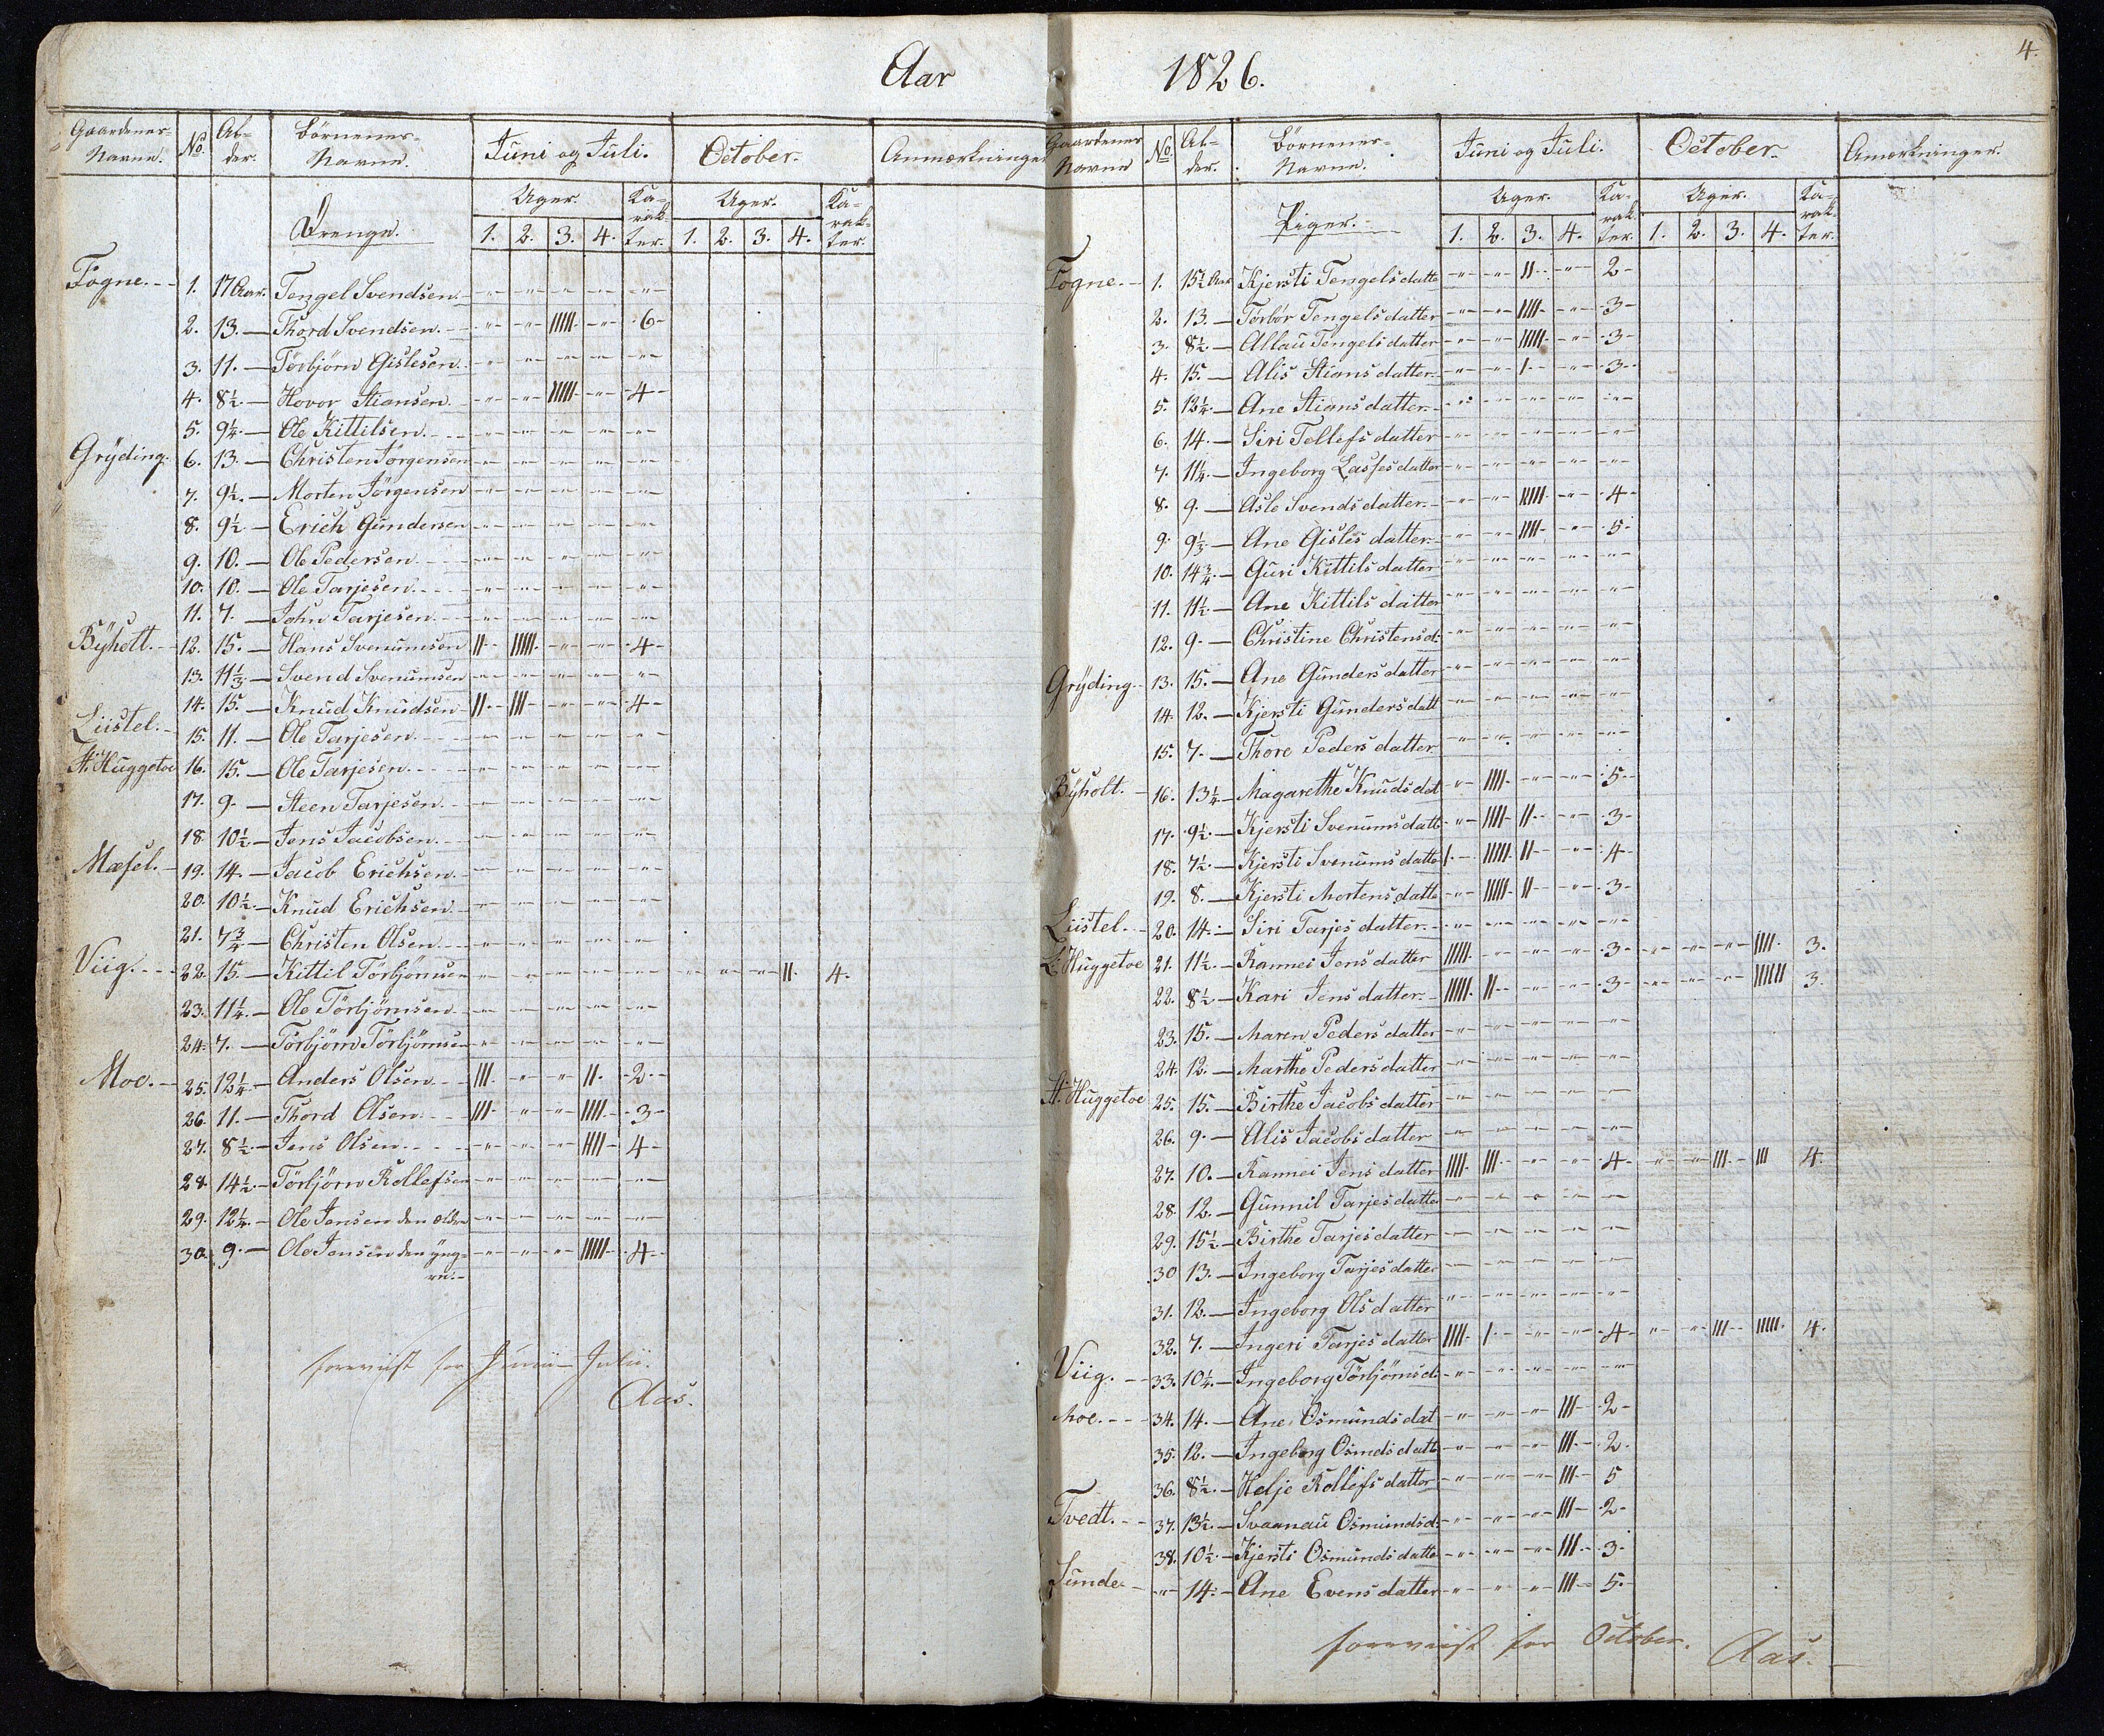 Aar 1826.
4.
Gaardenes Navne. No. Alder. Börnenes Navne. Juni og Juli. October. Anmærkninger
Uger. Karakter. Uger. Karakter.
Drenge. 1. 2. 3. 4. 1. 2. 3. 4.
Fogne. 1. 17 Aar. Tengel Svendsen. -"- -"- -"- -"- -"-
2. 13. — Thord Svendsen. -"- -"- IIIII -"- 6
3. 11. — Torbjörn Gislesen. -"- -"- -"- -"- -"-
4. 8½. — Hovor Stiansen. -"- -"- IIIII -"- 4
5. 9¼. — Ole Kittilsen. -"- -"- -"- -"- -"-
Grÿding. 6. 13. — Christen Jörgensen -"- -"- -"- -"- -"-
7. 9½. — Morten Jörgensen -"- -"- -"- -"- -"-
8. 9½ — Erich Gundersen -"- -"- -"- -"- -"-
9. 10. — Ole Pedersen. -"- -"- -"- -"- -"-
10. 10. — Ole Tarjesen. -"- -"- -"- -"- -"-
11. 7. — John Tarjesen. -"- -"- -"- -"- -"-
Bÿholt. 12. 15. — Hans Svenumsen II IIIII -"- -"- 4
13. 11⅓ — Svend Svenumsen -"- -"- -"- -"- -"-
14. 15. — Knud Knudsen II III -"- -"- 4
Liistel. 15. 11. — Ole Tarjesen. -"- -"- -"- -"- -"-
St. Huggetoe 16. 15. — Ole Tarjesen. -"- -"- -"- -"- -"-
17. 9. — Steen Tarjesen. -"- -"- -"- -"- -"-
18. 10½ — Jens Jacobsen. -"- -"- -"- -"- -"-
Mæsel. 19. 14. — Jacob Erichsen. -"- -"- -"- -"- -"-
20. 10½. — Knud Erichsen. -"- -"- -"- -"- -"-
21. 7¾ — Christen Olsen. -"- -"- -"- -"- -"-
Viig. 22. 15. — Kittil Törbjörnsen -"- -"- -"- -"- -"- -"- -"- -"- II 4.
23. 11¼. — Ole Törbjörnsen. -"- -"- -"- -"- -"-
24. 7. — Törbjörn Törbjörnsen -"- -"- -"- -"- -"-
Moe. 25. 12¼ — Anders Olsen. III -"- -"- II. 2.
26. 11. — Thord Olsen. III -"- -"- IIII. 3
27. 8½. — Jens Olsen. -"- -"- -"- IIII 4
28. 14½. — Törbjörn Rollefsen -"- -"- -"- -"- -"-
29. 12¼. — Ole Jensen den ældre -"- -"- -"- -"- -"-
30. 9. — Ole Jensen den yng- -"- -"- -"- IIIII 4
re.
foreviist for Junii - Julii.
Aas.
Gaardenes Navne No. Alder. Börnenes Navne. Juni og Juli. October. Anmerkninger.
Uger. Karakter. Uger. Karakter.
Piger. 1. 2. 3. 4. 1. 2. 3. 4.
Fogne. 1. 15½ Aar Kjersti Tengelsdatte -"- -"- II -"- 2
2. 13. — Törbör Tengelsdatter -"- -"- IIII -"- 3
3. 8½. — Allau Tengelsdatter -"- -"- IIIII -"- 3
4. 15. — Alis Stiansdatter. -"- -"- I -"- 3
5. 12¼. — Ane Stiansdatter. -"- -"- -"- -"- -"-
6. 14. — Siri Tellefsdatter -"- -"- -"- -"- -"-
7. 11¼. — Ingeborg Lassesdatter -"- -"- -"- -"- -"-
8. 9. — Asle Svendsdatter. -"- -"- IIIII -"- 4
9. 9⅓ — Ane Gislesdatter. -"- -"- IIII -"- 5
10. 14¾. — Guri Kittilsdatter -"- -"- -"- -"- -"-
11. 11½. — Ane Kittilsdatter -"- -"- -"- -"- -"-
12. 9. — Christine Christensd: -"- -"- -"- -"- -"-
Grÿding. 13. 15. — Ane Gundersdatter -"- -"- -"- -"- -"-
14. 12. — Kjersti Gundersdatt -"- -"- -"- -"- -"-
15. 7. — Thore Pedersdatter -"- -"- -"- -"- -"-
Bÿholt. 16. 13¼. — Magarethe Knudsdat -"- IIII -"- -"- 5
17. 9½. — Kjersti Svenumsdatt -"- IIII II -"- 3
18. 7½. — Kjersti Svenumsdatte I IIIII II -"- 4
19. 8. — Kjersti Mortensdatte -"- IIIII II -"- 3
Liistel. 20. 14. — Siri Tarjesdatter. -"- -"- -"- -"- -"-
L: Huggetoe 21. 11½. — Rannei Jensdatter IIIII -"- -"- -"- 3 -"- -"- -"- IIII 3.
22. 8½. — Kari Jensdatter. IIIII II -"- -"- 3 -"- -"- -"- IIIIII 3.
23. 15. — Maren Pedersdatter -"- -"- -"- -"- -"-
24. 12. — Marthe Pedersdatter -"- -"- -"- -"- -"-
St. Huggetoe 25. 15. — Birthe Jacobsdatter -"- -"- -"- -"- -"-
26. 9. — Alis Jacobsdatter -"- -"- -"- -"- -"-
27. 10. — Rannei Jensdatter IIII III -"- -"- 4 -"- -"- III III 4.
28. 12. — Gunnil Tarjesdatte -"- -"- -"- -"- -"-
29. 15½ — Birthe Tarjesdatter -"- -"- -"- -"- -"-
30 13. — Ingeborg Tarjesdatte -"- -"- -"- -"- -"-
31. 12. — Ingeborg Olsdatter -"- -"- -"- -"- -"-
32. 7. — Ingeri Tarjesdatter IIII I -"- -"- 4 -"- -"- III IIIII 4.
Viig. 33. 10¼. — Ingeborg Törbjörnsd: -"- -"- -"- -"- -"-
Moe. 34. 14. — Ane Osmundsdat -"- -"- -"- III 2
35. 12. — Ingeborg Osmdsdatt -"- -"- -"- III 2.
36. 8½. — Helje Rollefsdatter -"- -"- -"- III 5
Tvedt. 37. 13½. — Svaanau Osmundsd: -"- -"- -"- III 2
38. 10½. — Kjersti Osmundsdatte -"- -"- -"- III 3
Sunde. -"- 14. — Ane Evensdatter -"- -"- -"- III 5.
foreviist for October. Aas.